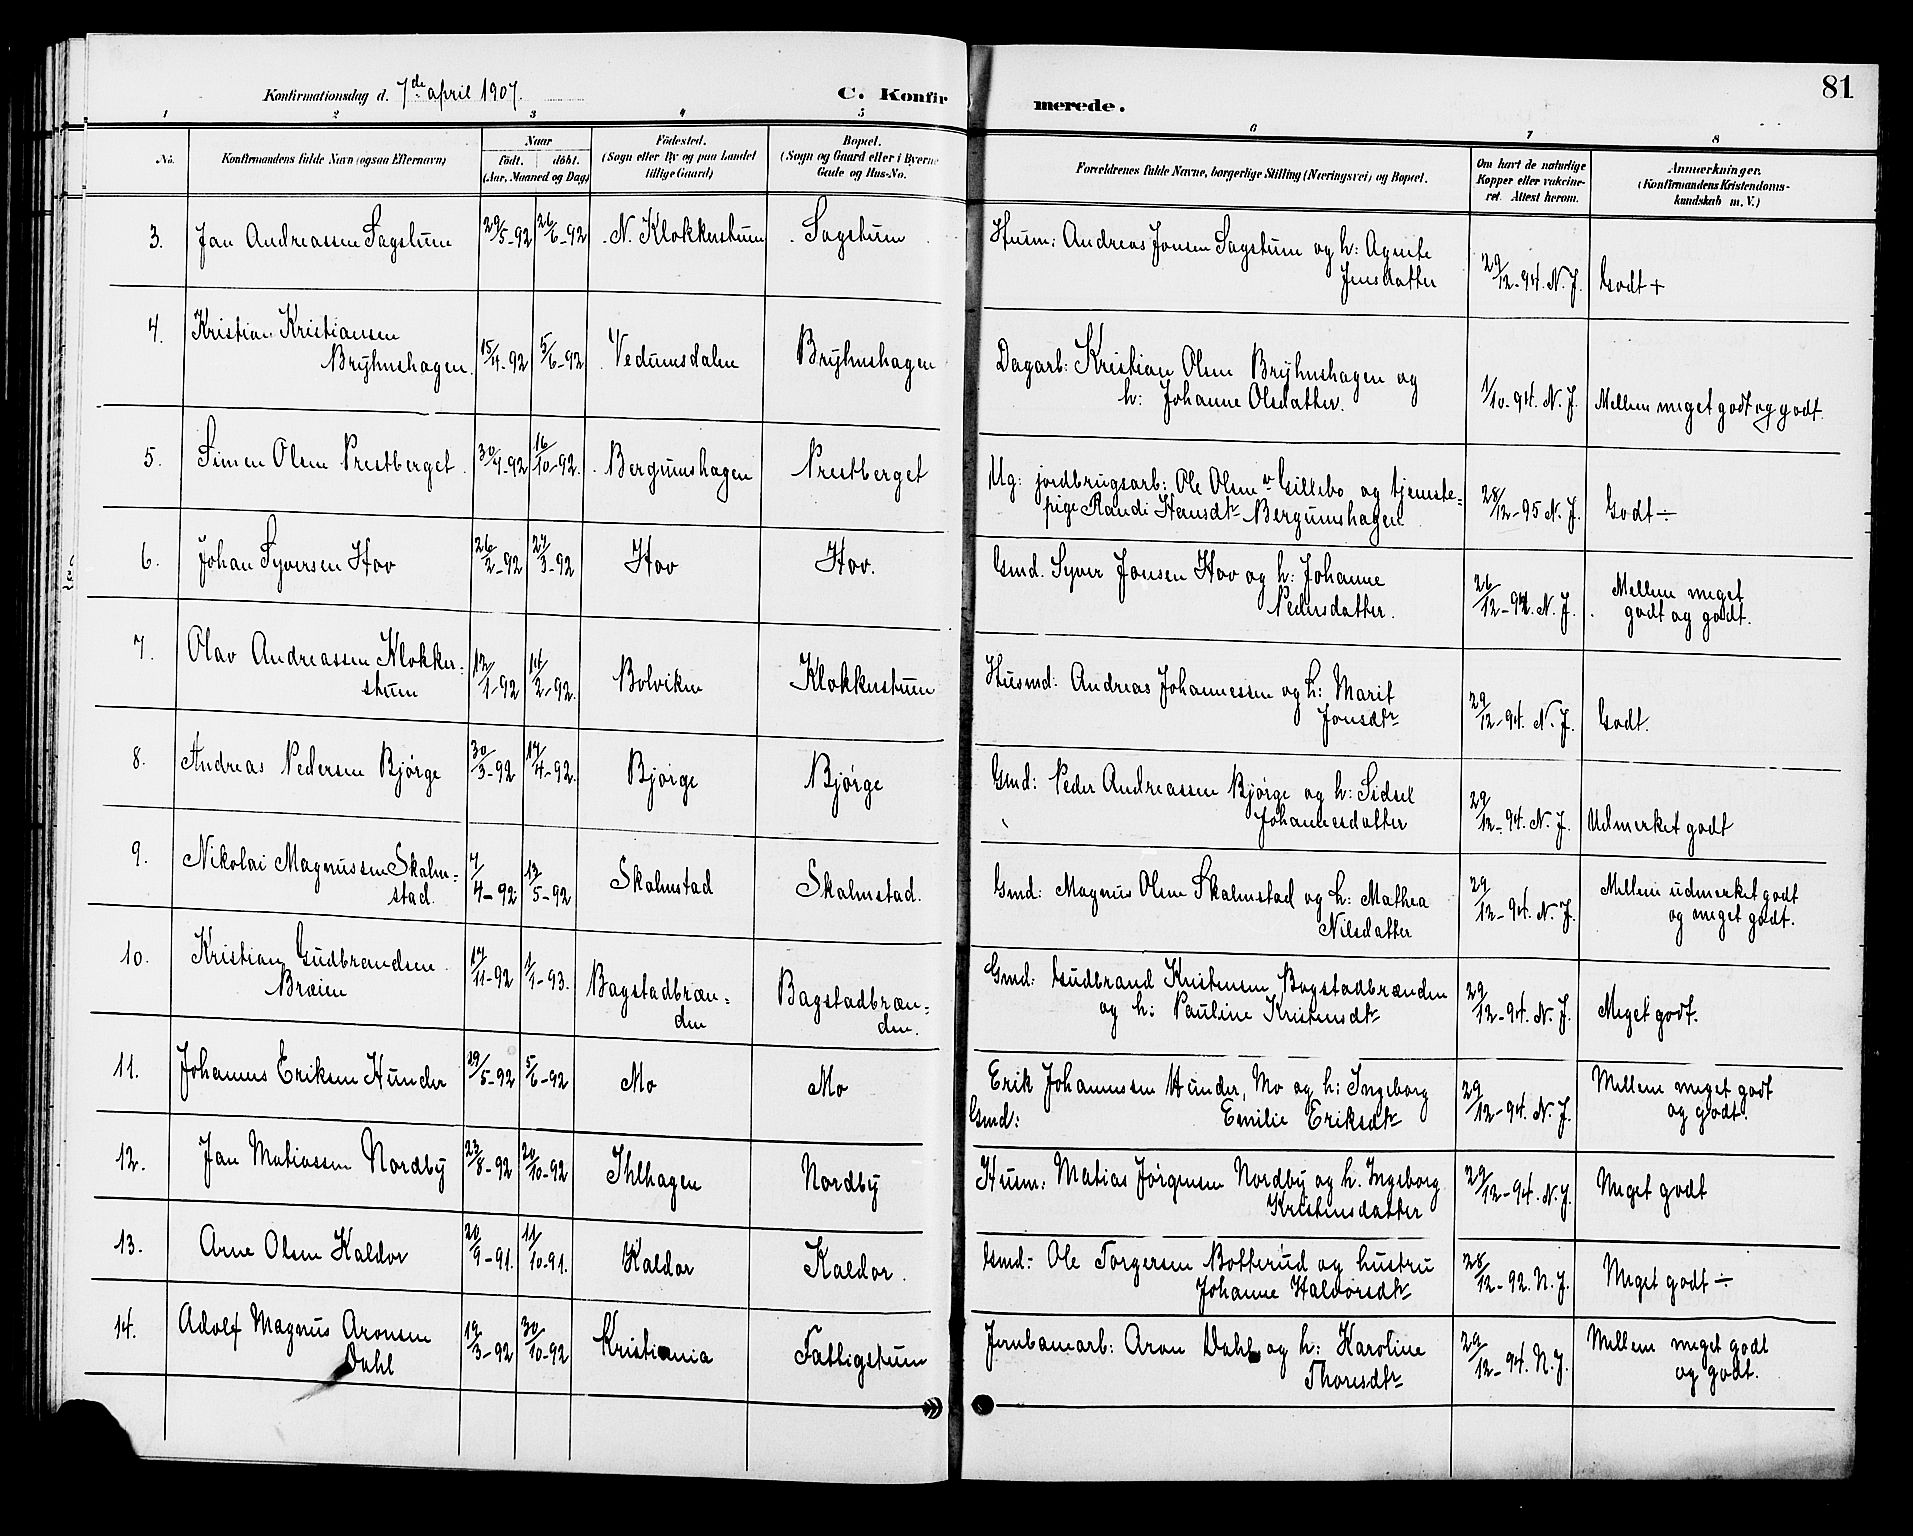 81
Konfirmationsdag d. 7de april 1907. C. Konfirmerede.
1 2 3 4 5 6 7 8
No. Konfirmandens fulde Navn (ogsaa Efternavn) Naar født. døbt. (Aar, Maaned og Dag) Fødested. (Sogn eller By og paa Landet tillige Gaard) Bopæl. (Sogn og Gaard eller i Byerne Gade og Hus-No. Forældrenes fulde Navne, borgerlige Stilling (Næringsvei) og Bopæl. Om havt de naturlige Kopper eller vakcineret. Attest herom. Anmærkninger. (Konfirmandens Kristendomskundskab m. V.)
3. Jan Andreassen Sagstuen 29/5-92 26/6-92 N. Klokkerstuen Sagstuen Husm: Andreas Jonsen Sagstuen og h: Agnete
Jensdatter 29/12-94. N. J. Godt +
4. Kristian Kristiansen
Bryhnshagen 15/4-92 5/6-92 Vedumsdalen Bryhnshagen Dagarb: Kristian Olsen Bryhnshagen og
h: Johanne Olsdatter. 1/10-94. N. J. Mellem meget godt og godt.
5. Simen Olsen Prestberget 30/9-92 16/10-92. Bergumshagen Prestberget Ug: jordbrugsarb: Ole Olsen v Gillebo og tjeneste=
pige Randi Hansdtr Bergumshagen 28/12-95 N. J. Godt ÷
6. Johan Syversen Hov 26/2-92 27/3-92 Hov Hov. Gmd. Syver Jonsen Hov og h: Johanne
Pedersdatter. 26/12-94. N. J. Mellem meget
godt og godt.
7. Olav Andreassen Klokker=
stuen 12/1-92 14/2-92. Bolviken Klokkerstuen Husmd: Andreas Johannessen og h: Marit
Jonsdtr 29/12-94. N. J. Godt.
8. Andreas Pedersen Bjørge 30/3-92 17/4-92. Bjørge Bjørge Gmd: Peder Andreassen Bjørge og h: Sidsel
Johannesdatter 29/12-94. N. J. Udmerket godt
9. Nikolai Magnussen Skalm=
stad. 7/4-92 12/5-92 Skalmstad Skalmstad. Gmd: Magnus Olsen Skalmstad og h: Mathea
Nilsdatter 29/12-94. N. J. Mellem udmerket godt
og meget godt.
10. Kristian Gudbrandsen
Bræien 17/11-92 1/1-93. Bagstadbræn=
den Bagstadbræn=
den. Gmd: Gudbrand Kristensen Bagstadbrænden
og h: Pauline Kristensdtr 29/12-94. N. J. Meget godt.
11. Johannes Eriksen Hunder 19/5-92 5/6-92 Mo Mo Erik Johannessen Hunder, Mo og h: Ingeborg
Gmd: Emilie Eriksdtr 29/12-94. N. J. Mellem meget godt
og godt.
12. Jan Matiassen Nordby 23/8-92 20/10-92 Ihlhagen Nordby Husm: Matias Jørgensen Nordby og h. Ingeborg
Kristensdatter 29/12-94. N. J. Meget godt
13. Arne Olsen Kaldor 20/9-91. 11/10-91. Kaldor Kaldor. Gmd: Ole Torgersen Botterud og hustru
Johanne Haldorsdtr 28/12-92. N. J. Meget godt ÷
14. Adolf Magnus Aronsen
Dahl 19/3-92 30/10-92 Kristiania Fattigstuen Jernbanearb: Aron Dahl og h: Karoline
Thoresdtr 29/12-94. N. J. Mellem meget godt
og godt.